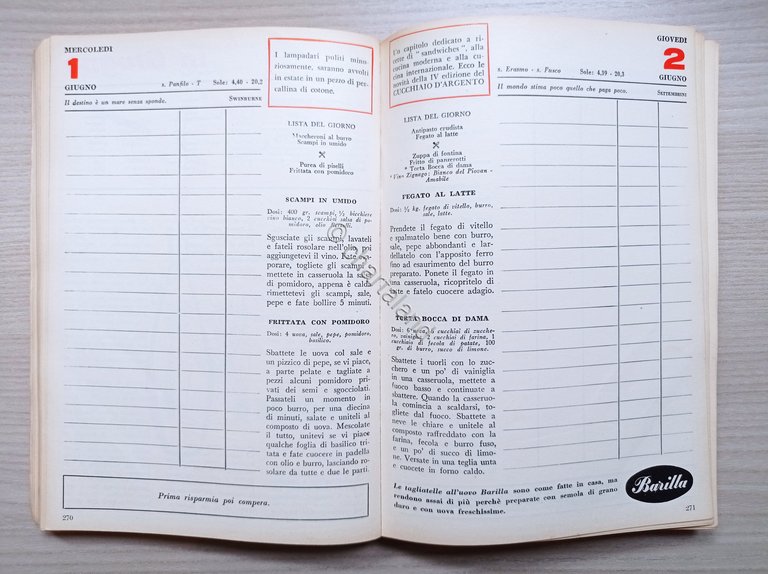 MERCOLEDÌ
1
GIUGNO
s. Panfilo - T
Sole: 4,40 - 20,2
Il destino è un mare senza sponde.
SWINBURNE
I lampadari politi mino-
ziosamente, saranno avvolti
in estate in un pezzo di per-
callina di cotone.
LISTA DEL GIORNO
Maccheroni al burro
Scampi in umido
Purea di piselli
Frittata con pomodoro
SCAMPI IN UMIDO
Dosi: 400 gr. scampi, ½ bicchiere
vino bianco, 2 cucchiai salsa di po-
midoro, olio
Sgusciate gli scampi, lavateli
e fateli rosolare nell'olio, poi
aggiungetevi il vino.
porare, togliete gli scampi,
mettete in casseruola la salsa
di pomodoro, appena è calda
rimettetevi gli scampi, sale,
pepe e fate bollire 5 minuti.
FRITTATA CON POMIDORO
Dosi: 4 uova, sale, pepe, pomidoro,
basilico.
Sbattete le uova col sale e
un pizzico di pepe, se vi piace,
a parte pelate e tagliate a
pezzi alcuni pomidoro pri-
vati dei semi e sgocciolati.
Passateli un momento in
poco burro, per una diecina
di minuti, salate e uniteli al
composto di uova. Mescolate
il tutto, unitevi se vi piace
qualche foglia di basilico tri-
tata e fate cuocere in padella
con olio e burro, lasciando ro-
solare da tutte e due le parti.
Prima risparmia poi compera.
270
Un capitolo dedicato a ri-
cette di "sandwiches", alla
cucina moderna e alla cu-
cina internazionale. Ecco le
novità della IV edizione del
CUCCHIAIO D'ARGENTO
GIOVEDÌ
2
GIUGNO
s. Erasmo - s. Fusco
Sole: 4,39 - 20,3
Il mondo stima poco quello che paga poco.
SETTEMBRINI
LISTA DEL GIORNO
Antipasto crudista
Fegato al latte
Zuppa di fontina
Fritto di panzerotti
* Torta Bocca di dama
* Vino Zignago: Bianco del Piovan -
Amabile
FEGATO AL LATTE
Dosi: ½ kg. fegato di vitello, burro,
sale, latte.
Prendete il fegato di vitello
e spalmatelo bene con burro,
sale, pepe abbondanti e lar-
dellatelo con l'apposito ferro
fino ad esaurimento del burro
preparato. Ponete il fegato in
casseruola, ricopritelo di
latte e fatelo cuocere adagio.
TORTA BOCCA DI DAMA
Dosi: 6 uova, 6 cucchiai di zucche-
ro, vainiglia, 2 cucchiai di farina, 1
cucchiaio di fecola di patate, 100
gr. di burro, succo di limone.
Sbattete i tuorli con lo zuc-
chero e un po' di vainiglia
in una casseruola, mettete a
fuoco basso e continuate a
sbattere. Quando la casseruo-
la comincia a scaldarsi, to-
gliete dal fuoco. Sbattete a
neve le chiare e unitele al
composto raffreddato con la
farina, fecola e burro fuso,
e un po' di succo di limo-
ne. Versate in una teglia unta
e cuocete in forno caldo.
Le tagliatelle all'uovo Barilla sono come fatte in casa, ma
rendono assai di più perchè preparate con semola di grano
duro e con uova freschissime.
Barilla
271